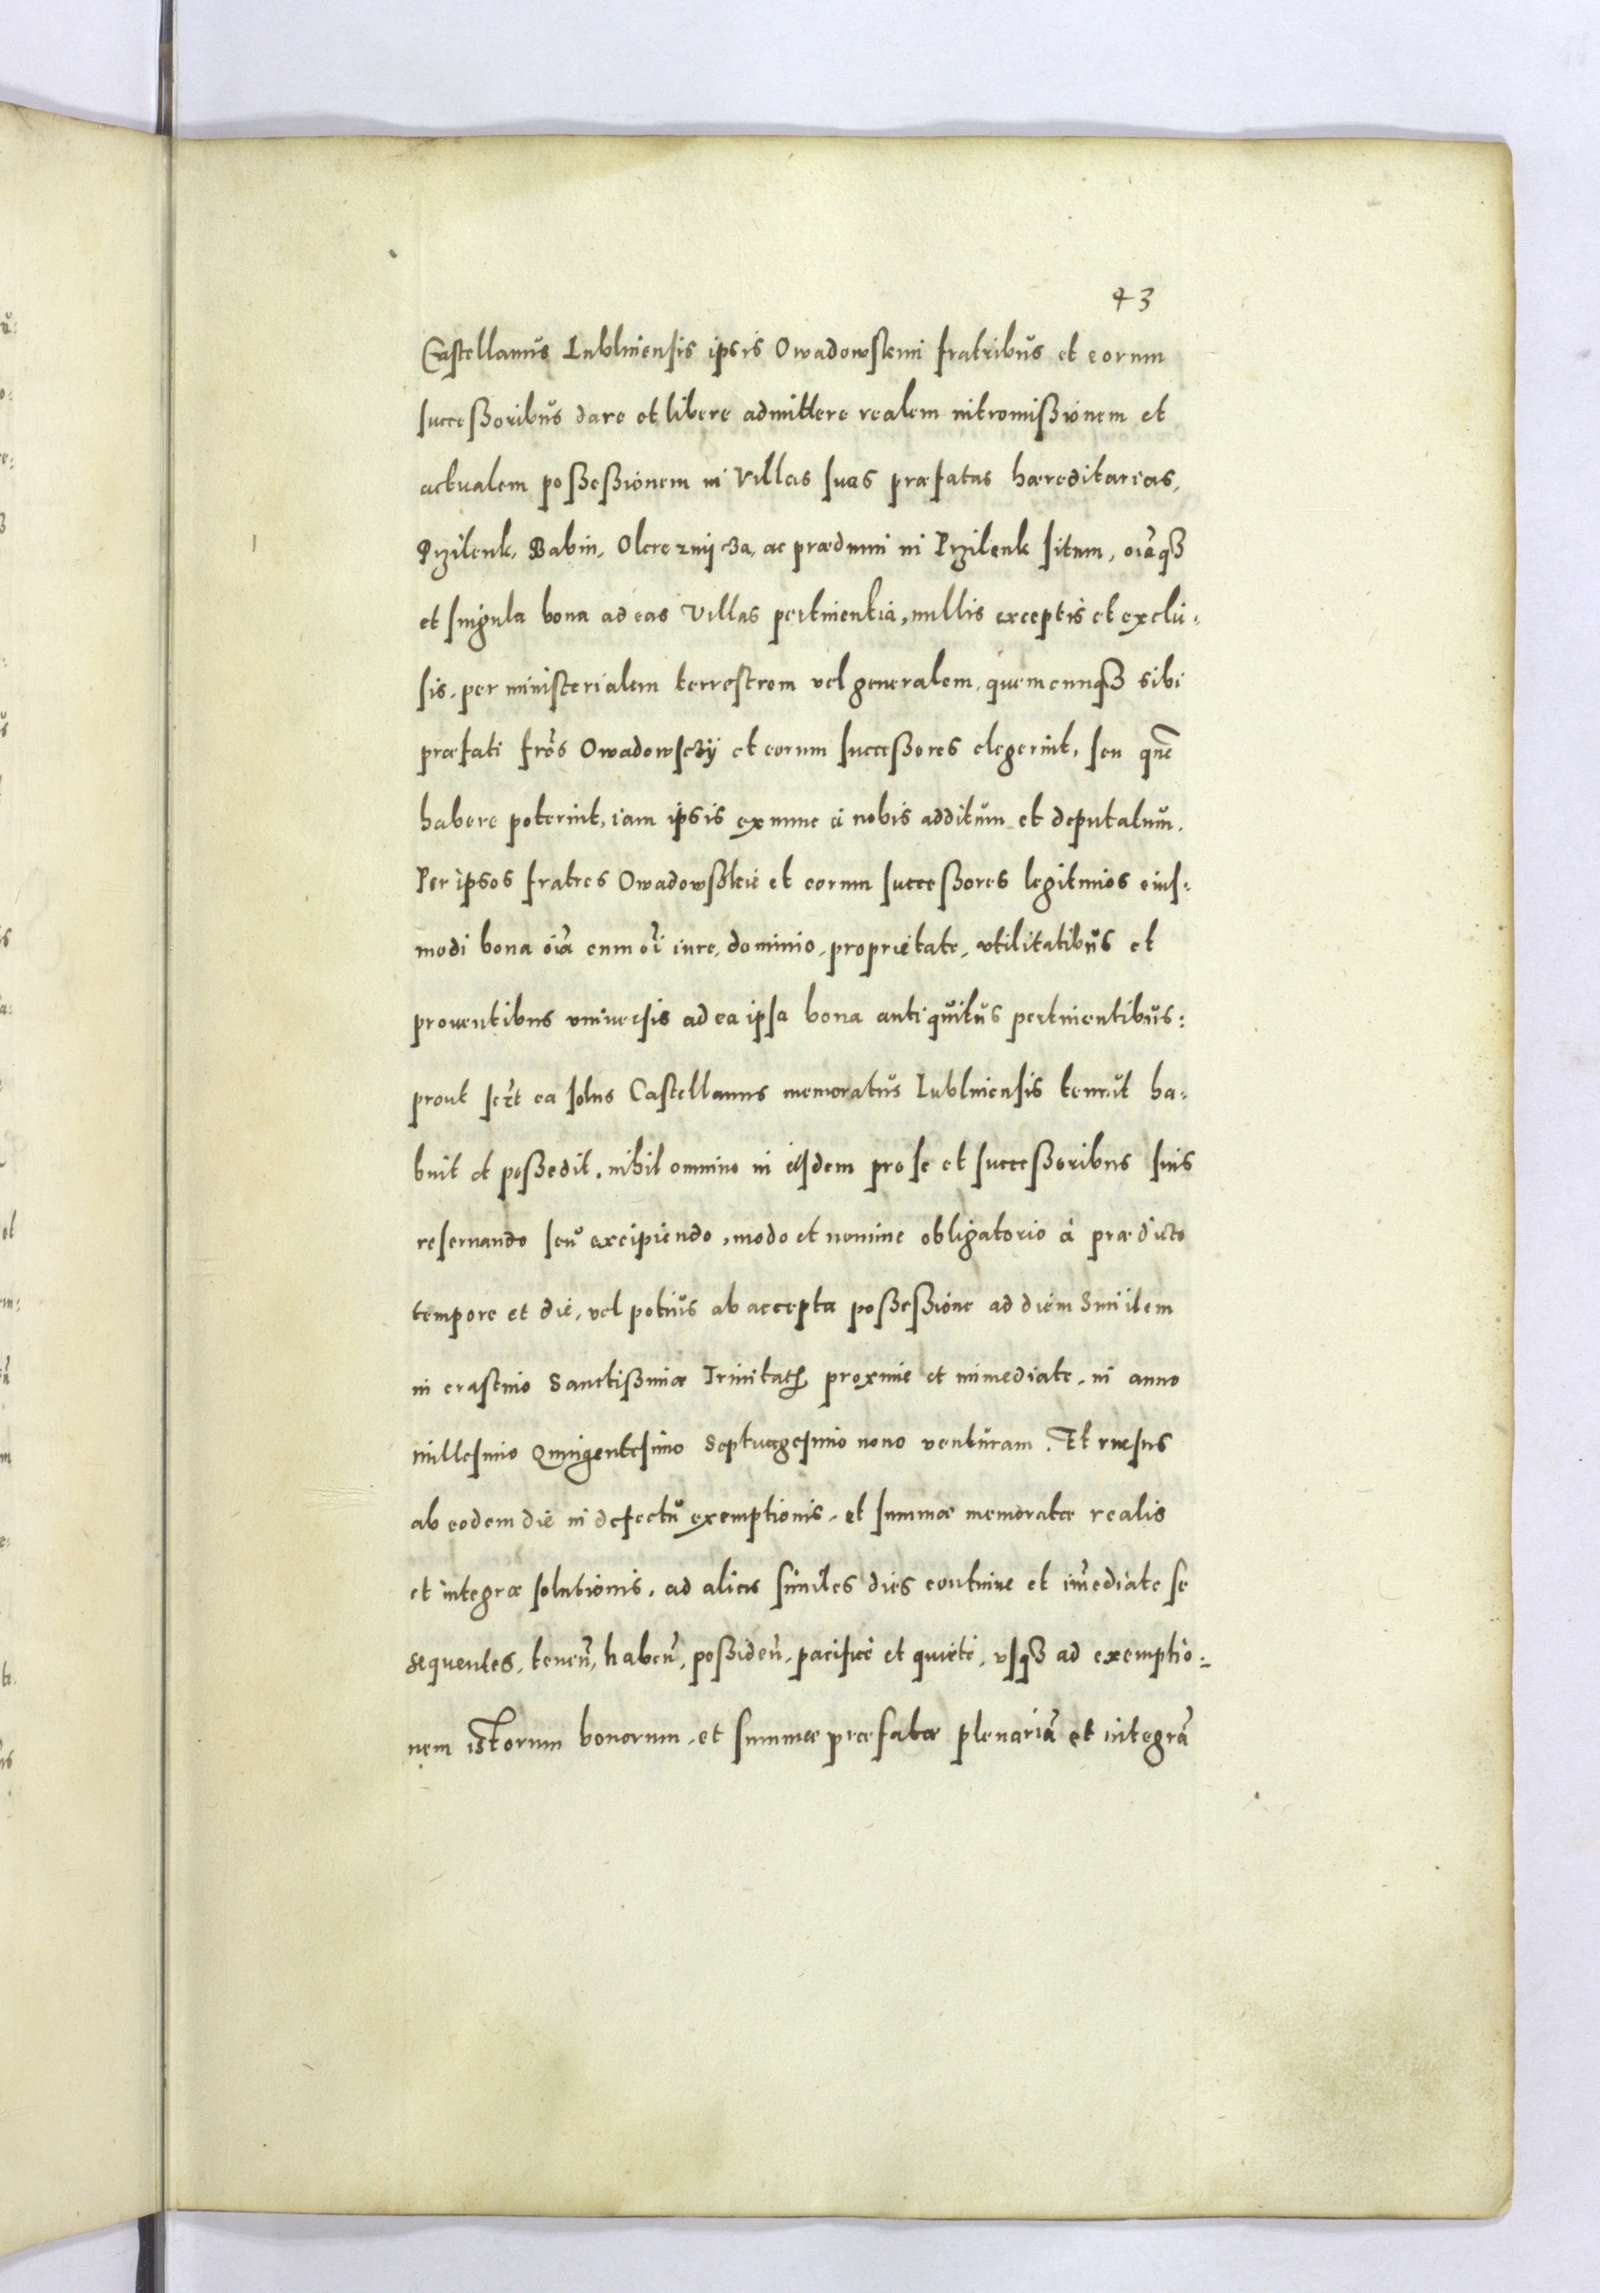 43
Castellanus Lublinensis ipsis Owadowskim fratribus et eorum
successoribus dare et libere admittere realem intromissionem et
actualem possessionem in Villas suas præfatas hæreditarias,
Przilenk, Babin, Olerznijcza, ac prædium in Przilenk situm, oĩaqȝ
et singula bona ad eas Villas pertinentia, nullis exceptis et exclu-
sis, per ministerialem terrestrem vel generalem, quemcunqȝ sibi
præfati frẽs Owadowsczy et eorum successores elegerint, seu quẽ
habere poterint, iam ipsis ex nunc à nobis additum et deputatum.
Per ipsos fratres Owadowskie et eorum successores legitimos eius-
modi bona oĩa cum oĩ iure, dominio, proprietate, vtilitatibus et
prouentibus vniuersis ad ea ipsa bona antiquitus pertinentibus:
prout solus Castellanus memoratus Lublinensis tenuit ha-
buit et possedit, nihil omnino in ijsdem pro se et successoribus suis
reseruando seu excipiendo, modo et nomine obligatorio à prædicto
tempore et die, vel potius ab accepta possessione ad diem Similem
in crastino Sanctissimæ Trinitatis proxime et immediate, in anno
millesimo Quingentesimo Septuagesimo nono venturam. Et rursus
ab eodem die in defectu exemptionis, et summæ memoratæ realis
et integræ solutionis, ad alias similes dies continue et im̃ediate se
sequentes, teneñ, habeñ, possideñ, pacifice et quiete, vsqȝ ad exemptio-
nem istorum bonorum, et summæ præfatæ plenariã et integrã